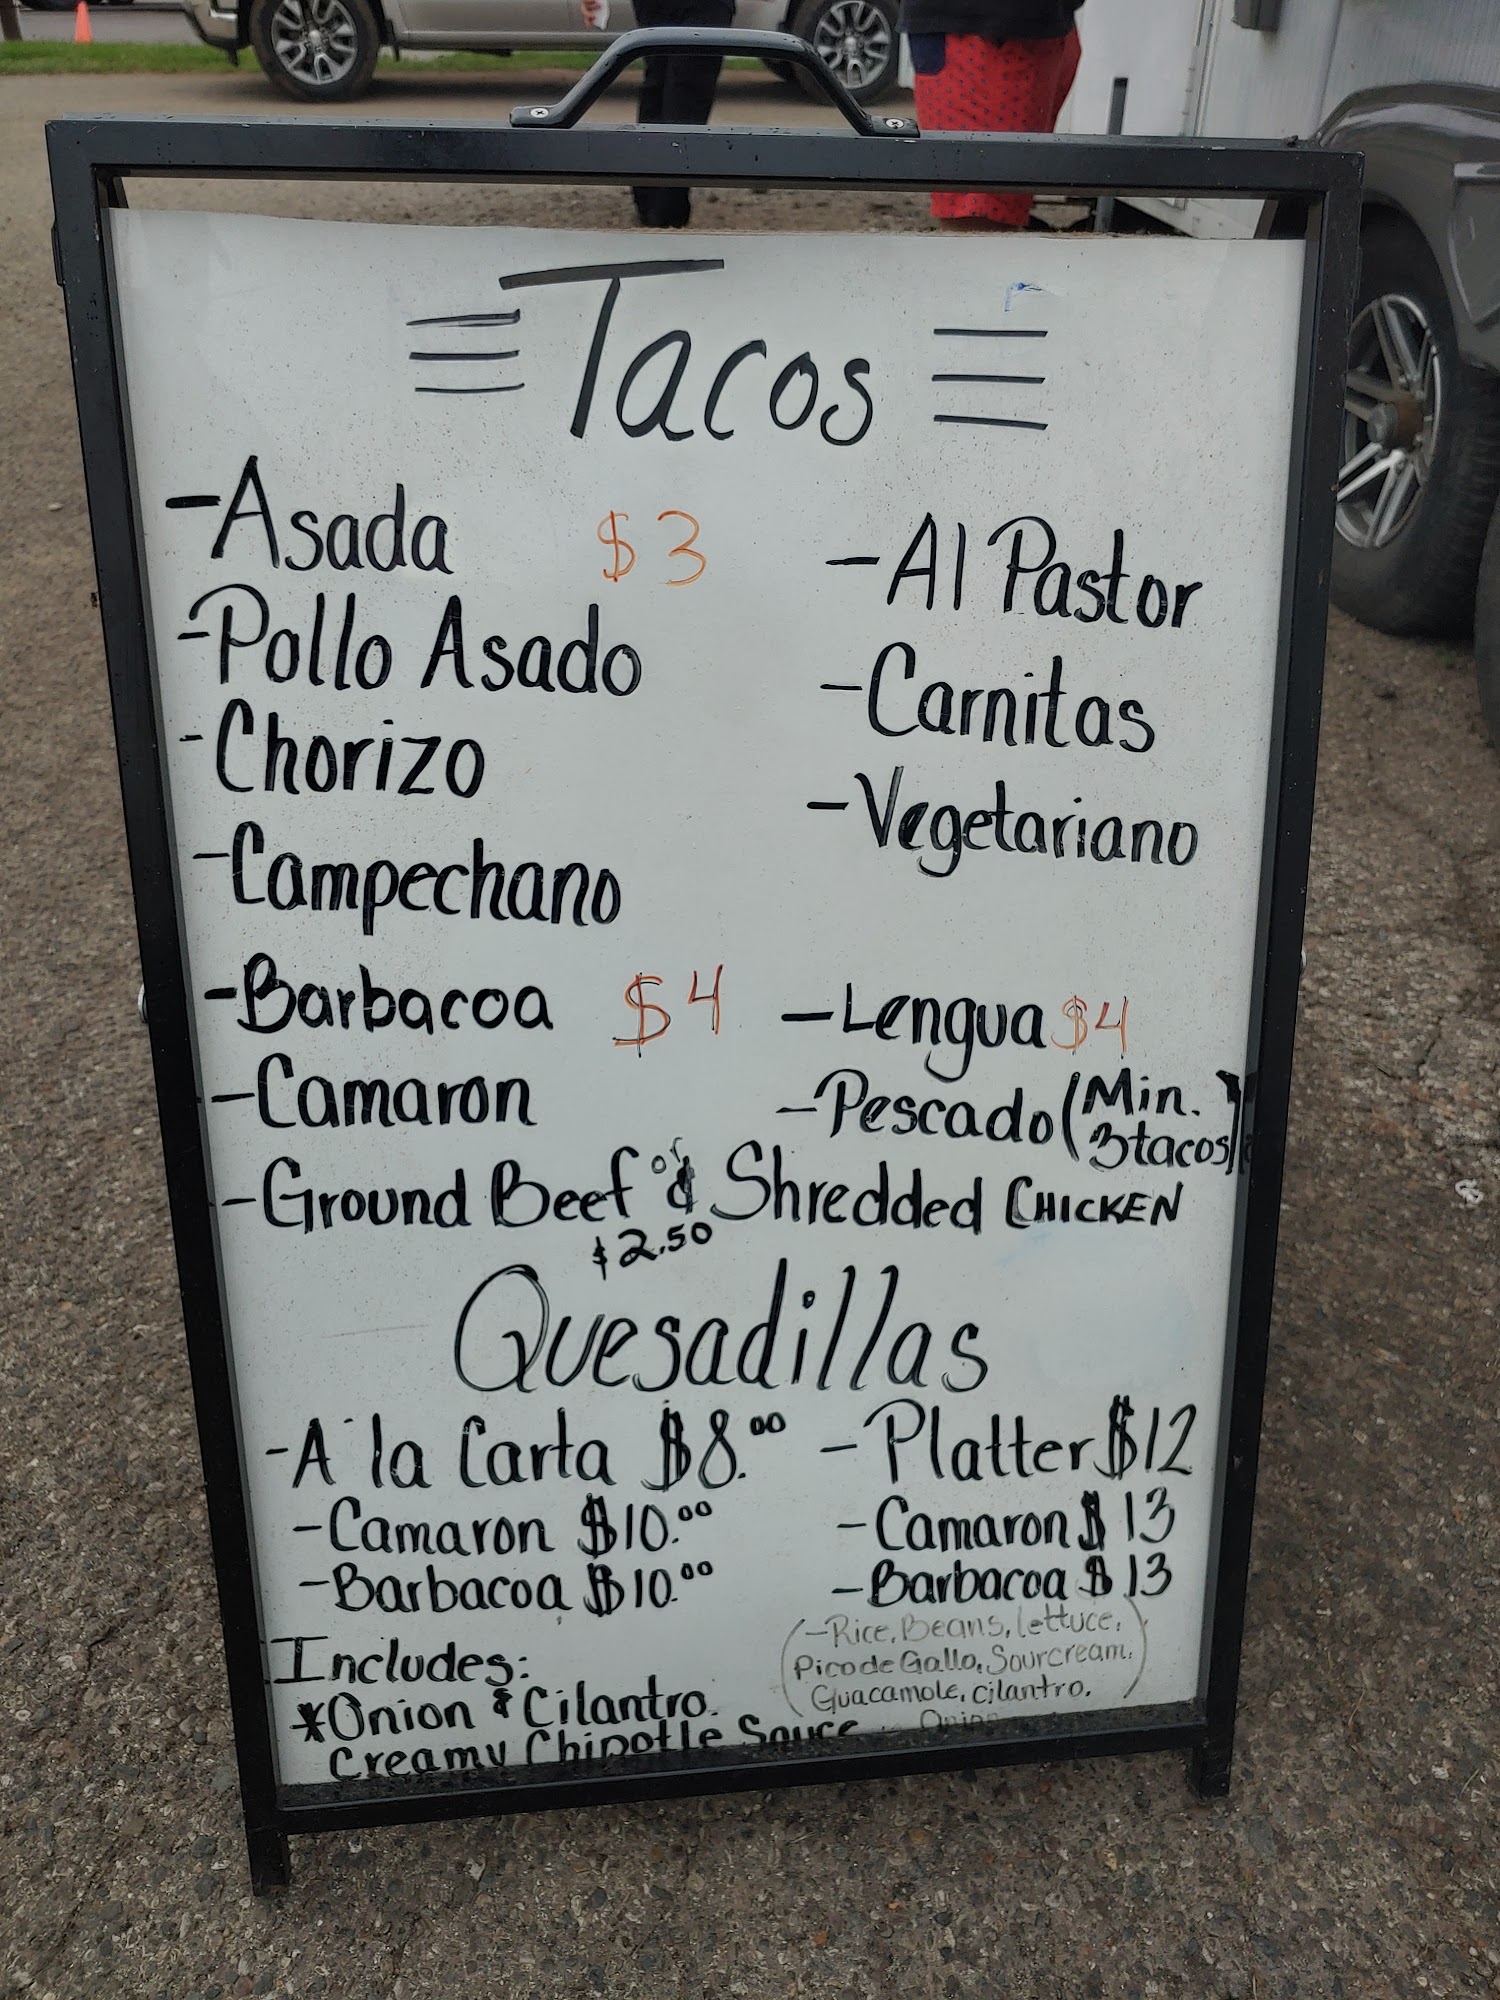 Tacos
-Asada $3
-Pollo Asado
-Chorizo
-Campechano
-Al Pastor
-Carnitas
-Vegetariano
-Barbacoa $4
-Camaron
-Lengua $4
-Pescado (Min. 3 tacos)
-Ground Beef or & Shredded CHICKEN
$2.50
Quesadillas
-A la Carta $8.00
-Camaron $10.00
-Barbacoa $10.00
-Platter $12
-Camaron $13
-Barbacoa $13
(-Rice, Beans, lettuce,
Pico de Gallo, Sourcream,
Guacamole, cilantro,
Onion
Includes:
*Onion & Cilantro.
Creamy Chipotle Sauce